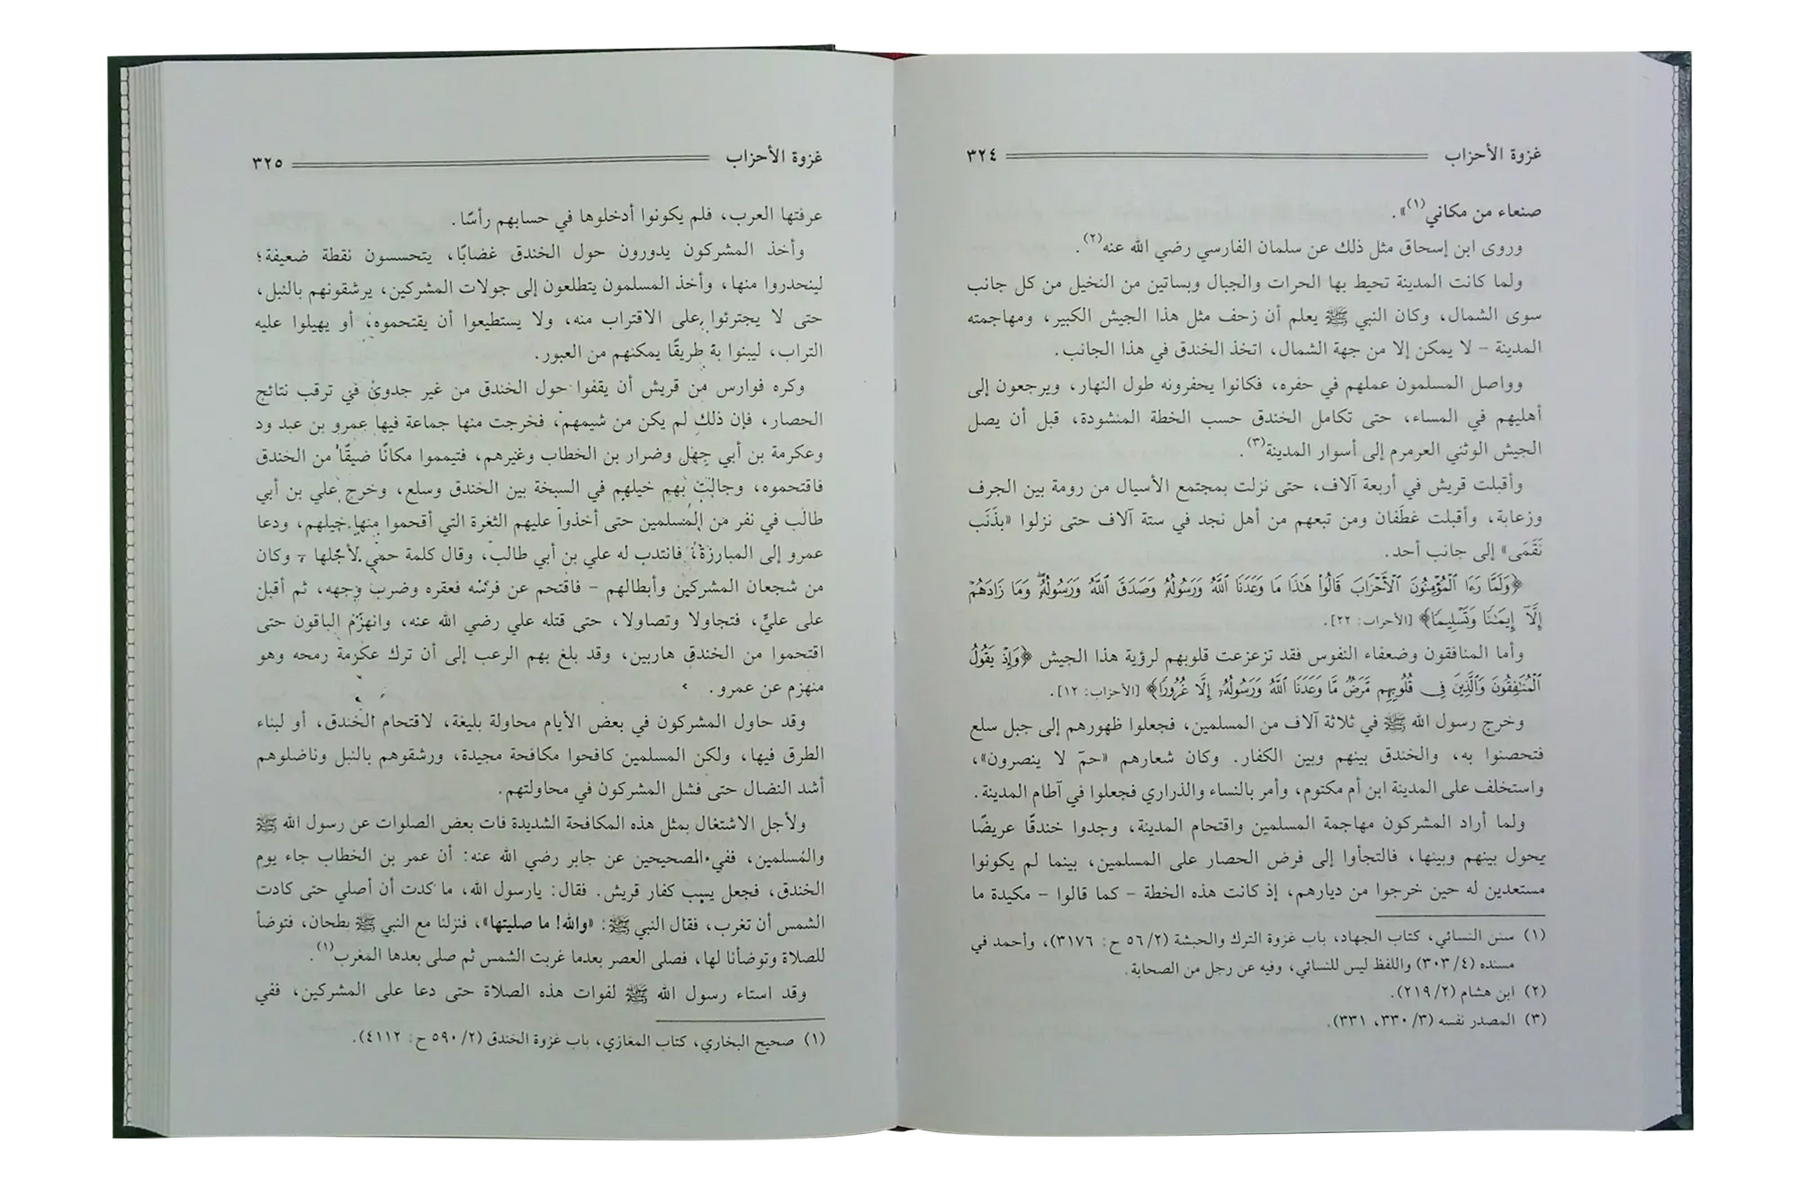 غزوة الأحزاب ٣٢٤
صنعاء من مكاني(١)».
وروى ابن إسحاق مثل ذلك عن سلمان الفارسي رضي الله عنه(٢).
ولما كانت المدينة تحيط بها الحرات والجبال وبساتين من النخيل من كل جانب
سوى الشمال، وكان النبي ﷺ يعلم أن زحف مثل هذا الجيش الكبير، ومهاجمته
المدينة - لا يمكن إلا من جهة الشمال، اتخذ الخندق في هذا الجانب.
وواصل المسلمون عملهم في حفره، فكانوا يحفرونه طول النهار، ويرجعون إلى
أهليهم في المساء، حتى تكامل الخندق حسب الخطة المنشودة، قبل أن يصل
الجيش الوثني العرمرم إلى أسوار المدينة(٣).
وأقبلت قريش في أربعة آلاف، حتى نزلت بمجتمع الأسيال من رومة بين الجرف
وزعابة، وأقبلت غطَفان ومن تبعهم من أهل نجد في ستة آلاف حتى نزلوا «بذَنَب
نَقَمَى» إلى جانب أحد.
﴿وَلَمَّا رَءَا ٱلْمُؤْمِنُونَ ٱلْأَحْزَابَ قَالُوا۟ هَٰذَا مَا وَعَدَنَا ٱللَّهُ وَرَسُولُهُۥ وَصَدَقَ ٱللَّهُ وَرَسُولُهُۥ ۚ وَمَا زَادَهُمْ
إِلَّآ إِيمَٰنًا وَتَسْلِيمًا﴾ [الأحزاب: ٢٢].
وأما المنافقون وضعفاء النفوس فقد تزعزعت قلوبهم لرؤية هذا الجيش ﴿وَإِذْ يَقُولُ
ٱلْمُنَٰفِقُونَ وَٱلَّذِينَ فِى قُلُوبِهِم مَّرَضٌ مَّا وَعَدَنَا ٱللَّهُ وَرَسُولُهُۥٓ إِلَّا غُرُورًا﴾ [الأحزاب: ١٢].
وخرج رسول الله ﷺ في ثلاثة آلاف من المسلمين، فجعلوا ظهورهم إلى جبل سلع
فتحصنوا به، والخندق بينهم وبين الكفار. وكان شعارهم «حمٓ لا ينصرون»،
واستخلف على المدينة ابن أم مكتوم، وأمر بالنساء والذراري فجعلوا في آطام المدينة.
ولما أراد المشركون مهاجمة المسلمين واقتحام المدينة، وجدوا خندقًا عريضًا
يحول بينهم وبينها، فالتجأوا إلى فرض الحصار على المسلمين، بينما لم يكونوا
مستعدين له حين خرجوا من ديارهم، إذ كانت هذه الخطة - كما قالوا - مكيدة ما
(١) سنن النسائي، كتاب الجهاد، باب غزوة الترك والحبشة (٥٦/٢ ح: ٣١٧٦)، وأحمد في
مسنده (٣٠٣/٤) واللفظ ليس للنسائي، وفيه عن رجل من الصحابة.
(٢) ابن هشام (٢١٩/٢).
(٣) المصدر نفسه (٣٣٠/٣، ٣٣١).
غزوة الأحزاب ٣٢٥
عرفتها العرب، فلم يكونوا أدخلوها في حسابهم رأسًا.
وأخذ المشركون يدورون حول الخندق غضابًا، يتحسسون نقطة ضعيفة؛
لينحدروا منها، وأخذ المسلمون يتطلعون إلى جولات المشركين، يرشقونهم بالنبل،
حتى لا يجترئوا على الاقتراب منه، ولا يستطيعوا أن يقتحموه، أو يهيلوا عليه
التراب، ليبنوا به طريقًا يمكنهم من العبور.
وكره فوارس من قريش أن يقفوا حول الخندق من غير جدوىٰ في ترقب نتائج
الحصار، فإن ذلك لم يكن من شيمهم، فخرجت منها جماعة فيها عمرو بن عبد ود
وعكرمة بن أبي جهل وضرار بن الخطاب وغيرهم، فتيمموا مكانًا ضيقًا من الخندق
فاقتحموه، وجالت بهم خيلهم في السبخة بين الخندق وسلع، وخرج علي بن أبي
طالب في نفر من المسلمين حتى أخذوا عليهم الثغرة التي أقحموا منها خيلهم، ودعا
عمرو إلى المبارزة، فانتدب له علي بن أبي طالب، وقال كلمة حمي لأجلها - وكان
من شجعان المشركين وأبطالهم - فاقتحم عن فرسه فعقره وضرب وجهه، ثم أقبل
على عليّ، فتجاولا وتصاولا، حتى قتله علي رضي الله عنه، وانهزم الباقون حتى
اقتحموا من الخندق هاربين، وقد بلغ بهم الرعب إلى أن ترك عكرمة رمحه وهو
منهزم عن عمرو.
وقد حاول المشركون في بعض الأيام محاولة بليغة، لاقتحام الخندق، أو لبناء
الطرق فيها، ولكن المسلمين كافحوا مكافحة مجيدة، ورشقوهم بالنبل وناضلوهم
أشد النضال حتى فشل المشركون في محاولتهم.
ولأجل الاشتغال بمثل هذه المكافحة الشديدة فات بعض الصلوات عن رسول الله ﷺ
والمسلمين، ففي الصحيحين عن جابر رضي الله عنه: أن عمر بن الخطاب جاء يوم
الخندق، فجعل يسب كفار قريش. فقال: يارسول الله، ما كدت أن أصلي حتى كادت
الشمس أن تغرب، فقال النبي ﷺ: «والله! ما صليتها»، فنزلنا مع النبي ﷺ بطحان، فتوضأ
للصلاة وتوضأنا لها، فصلى العصر بعدما غربت الشمس ثم صلى بعدها المغرب(١).
وقد استاء رسول الله ﷺ لفوات هذه الصلاة حتى دعا على المشركين، ففي
(١) صحيح البخاري، كتاب المغازي، باب غزوة الخندق (٥٩٠/٢ ح: ٤١١٢).